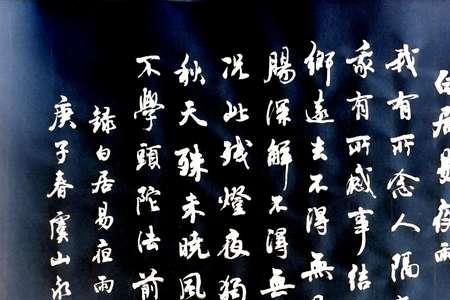 白居易夜雨
我有所念人隔
我有所感事結
鄉遠去不得無
腸深解不得無
況此殘燈夜獨
秋天殊未曉風
不學頭陀法前
録白居易夜雨
庚子春虞山